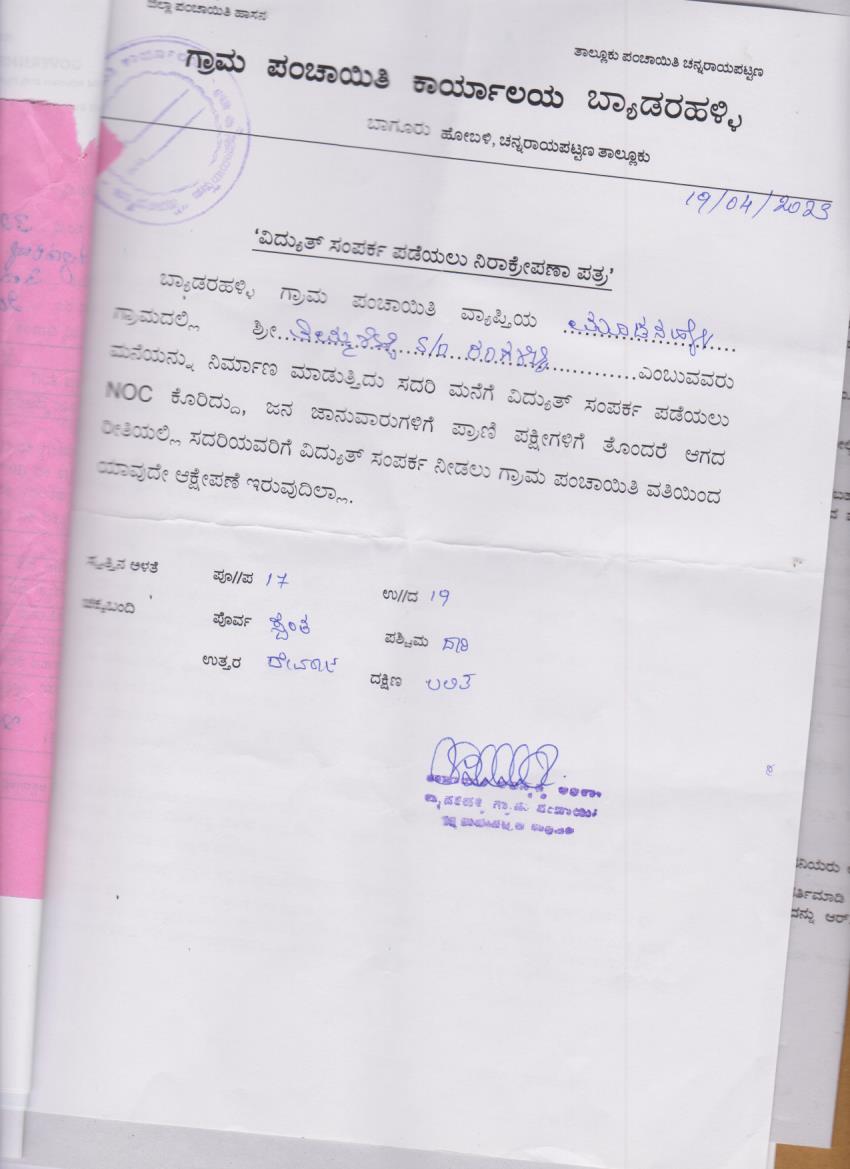 ಜಿಲ್ಲಾ ಪಂಚಾಯಿತಿ ಹಾಸನ
ತಾಲ್ಲೂಕು ಪಂಚಾಯಿತಿ ಚನ್ನರಾಯಪಟ್ಟಣ
ಗ್ರಾಮ ಪಂಚಾಯಿತಿ ಕಾರ್ಯಾಲಯ ಬ್ಯಾಡರಹಳ್ಳಿ
ಬಾಗೂರು ಹೋಬಳಿ, ಚನ್ನರಾಯಪಟ್ಟಣ ತಾಲ್ಲೂಕು
19/04/2023
'ವಿದ್ಯುತ್ ಸಂಪರ್ಕ ಪಡೆಯಲು ನಿರಾಕ್ರೇಪಣಾ ಪತ್ರ'
ಬ್ಯಾಡರಹಳ್ಳಿ ಗ್ರಾಮ ಪಂಚಾಯಿತಿ ವ್ಯಾಪ್ತಿಯ
ಗ್ರಾಮದಲ್ಲಿ ಶ್ರೀ S/o ಎಂಬುವವರು
ಮನೆಯನ್ನು ನಿರ್ಮಾಣ ಮಾಡುತ್ತಿದು ಸದರಿ ಮನೆಗೆ ವಿದ್ಯುತ್ ಸಂಪರ್ಕ ಪಡೆಯಲು
NOC ಕೊರಿದ್ದು, ಜನ ಜಾನುವಾರುಗಳಿಗೆ ಪ್ರಾಣಿ ಪಕ್ಷೀಗಳಿಗೆ ತೊಂದರೆ ಆಗದ
ರೀತಿಯಲ್ಲಿ ಸದರಿಯವರಿಗೆ ವಿದ್ಯುತ್ ಸಂಪರ್ಕ ನೀಡಲು ಗ್ರಾಮ ಪಂಚಾಯಿತಿ ವತಿಯಿಂದ
ಯಾವುದೇ ಆಕ್ಷೇಪಣೆ ಇರುವುದಿಲ್ಲಾ.
ಸ್ವತ್ತಿನ ಅಳತೆ ಪೂ//ಪ 17 ಉ//ದ 19
ಚಕ್ಕಬಂದಿ ಪೊರ್ವ ಪಶ್ಚಿಮ ದಾರಿ
ಉತ್ತರ ದಕ್ಷಿಣ